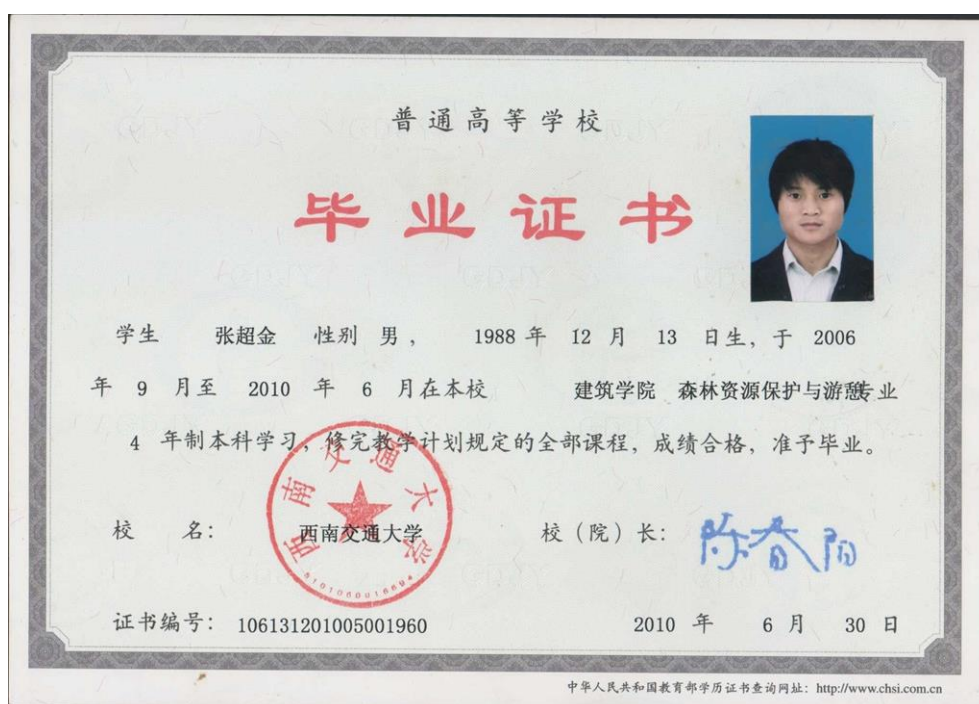 普通高等学校
毕业证书
学生 张超金 性别 男， 1988 年 12 月 13 日生，于 2006
年 9 月至 2010 年 6 月在本校 建筑学院 森林资源保护与游憩专业
4 年制本科学习，修完教学计划规定的全部课程，成绩合格，准予毕业。
校 名： 西南交通大学 校（院）长： 陈春阳
西南交通大学
证书编号： 106131201005001960 2010 年 6 月 30 日
中华人民共和国教育部学历证书查询网址：http://www.chsi.com.cn